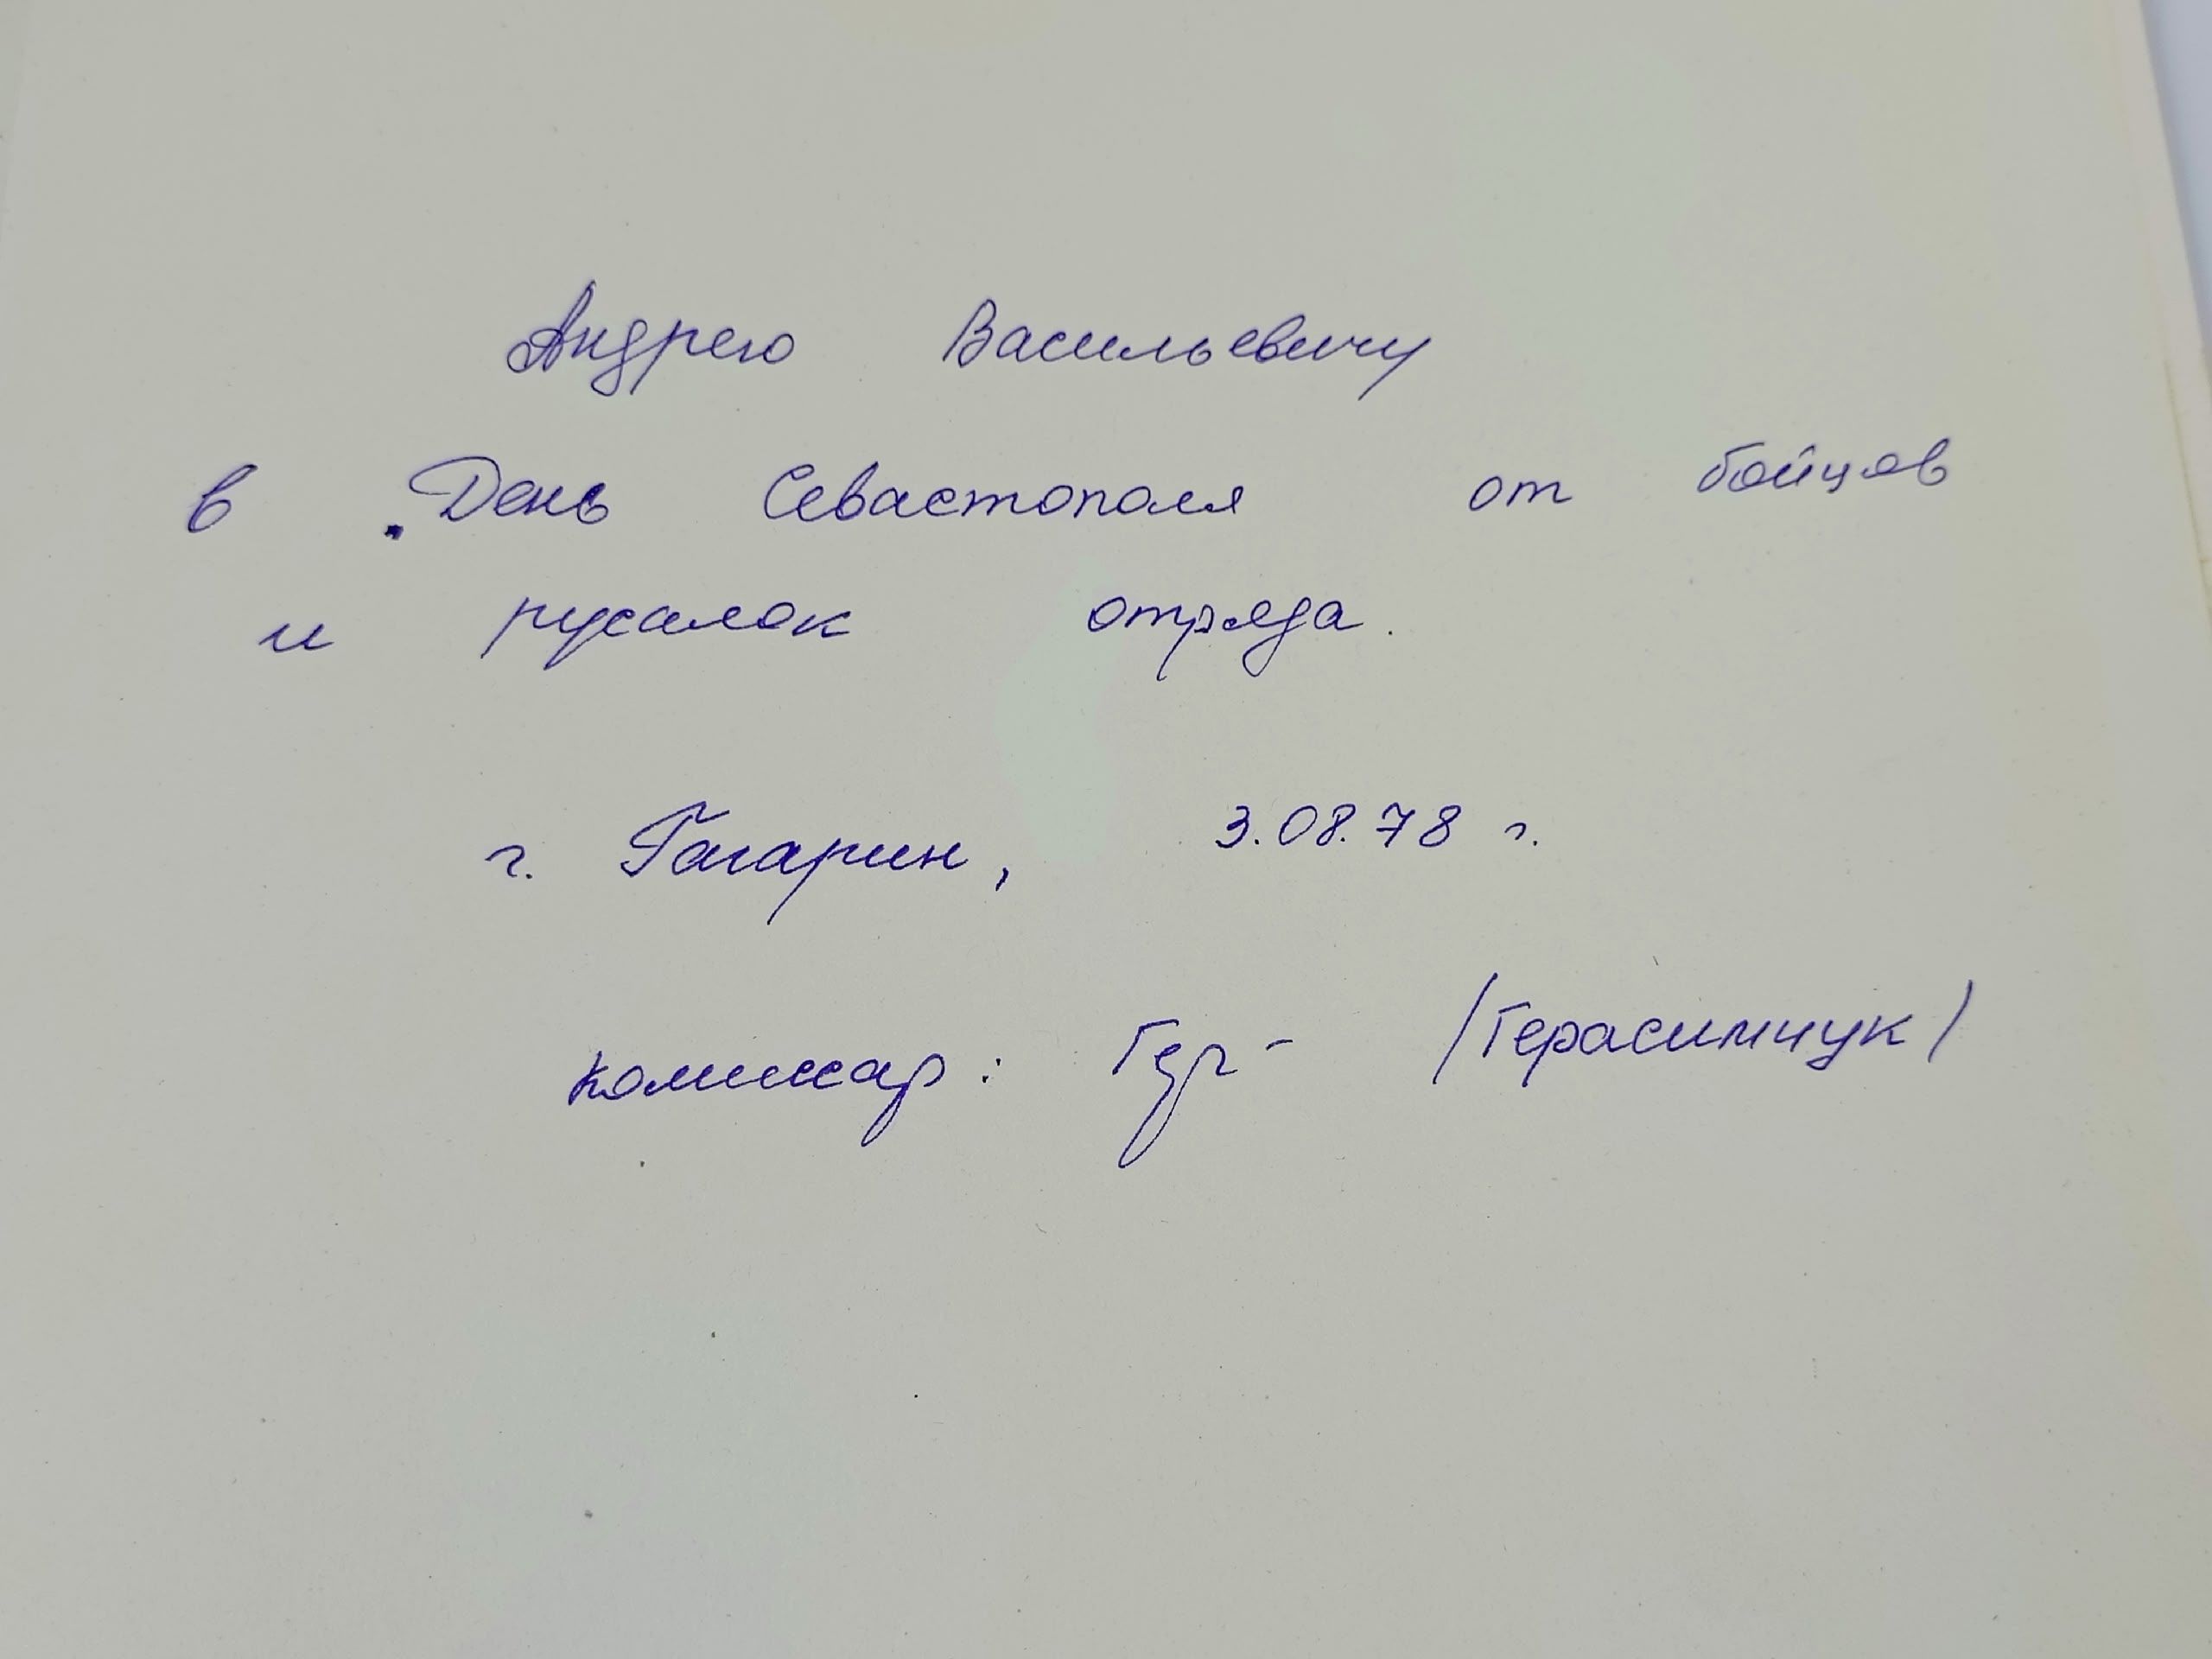 Андрею Васильевичу
в День Севастополя от бойцов
и русалок отряда.
г. Гагарин, 3.08.78 г.
комиссар: (Герасимчук)